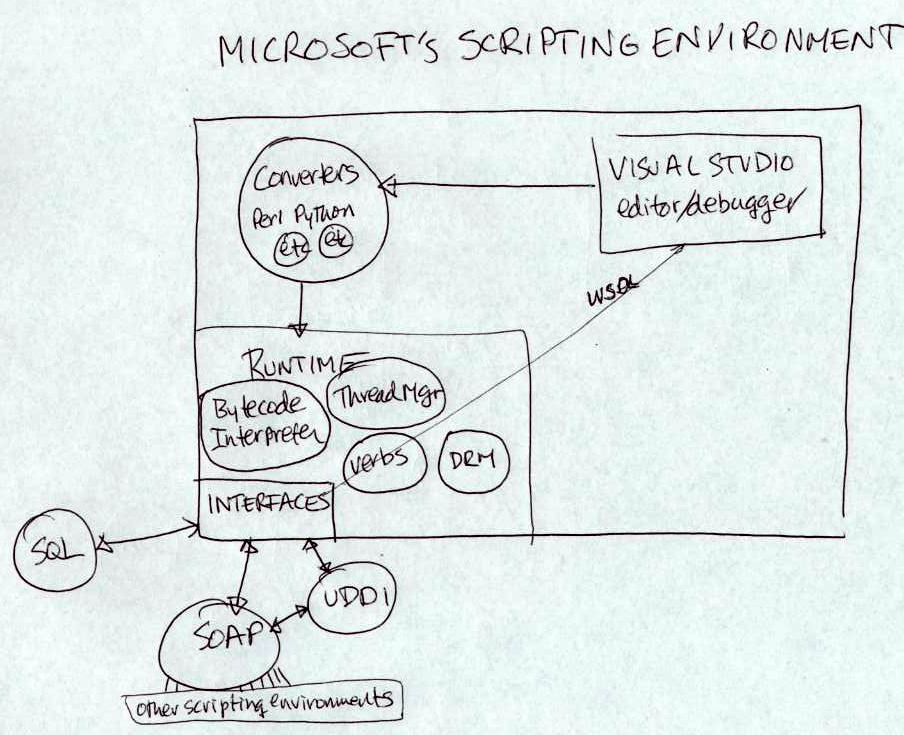 MICROSOFT'S SCRIPTING ENVIRONMENT
Converters
Perl Python
etc etc
VISUAL STUDIO
editor/debugger
WSDL
RUNTIME
Bytecode
Interpreter
ThreadMgr
verbs
DRM
INTERFACES
SQL
UDDI
SOAP
other scripting environments